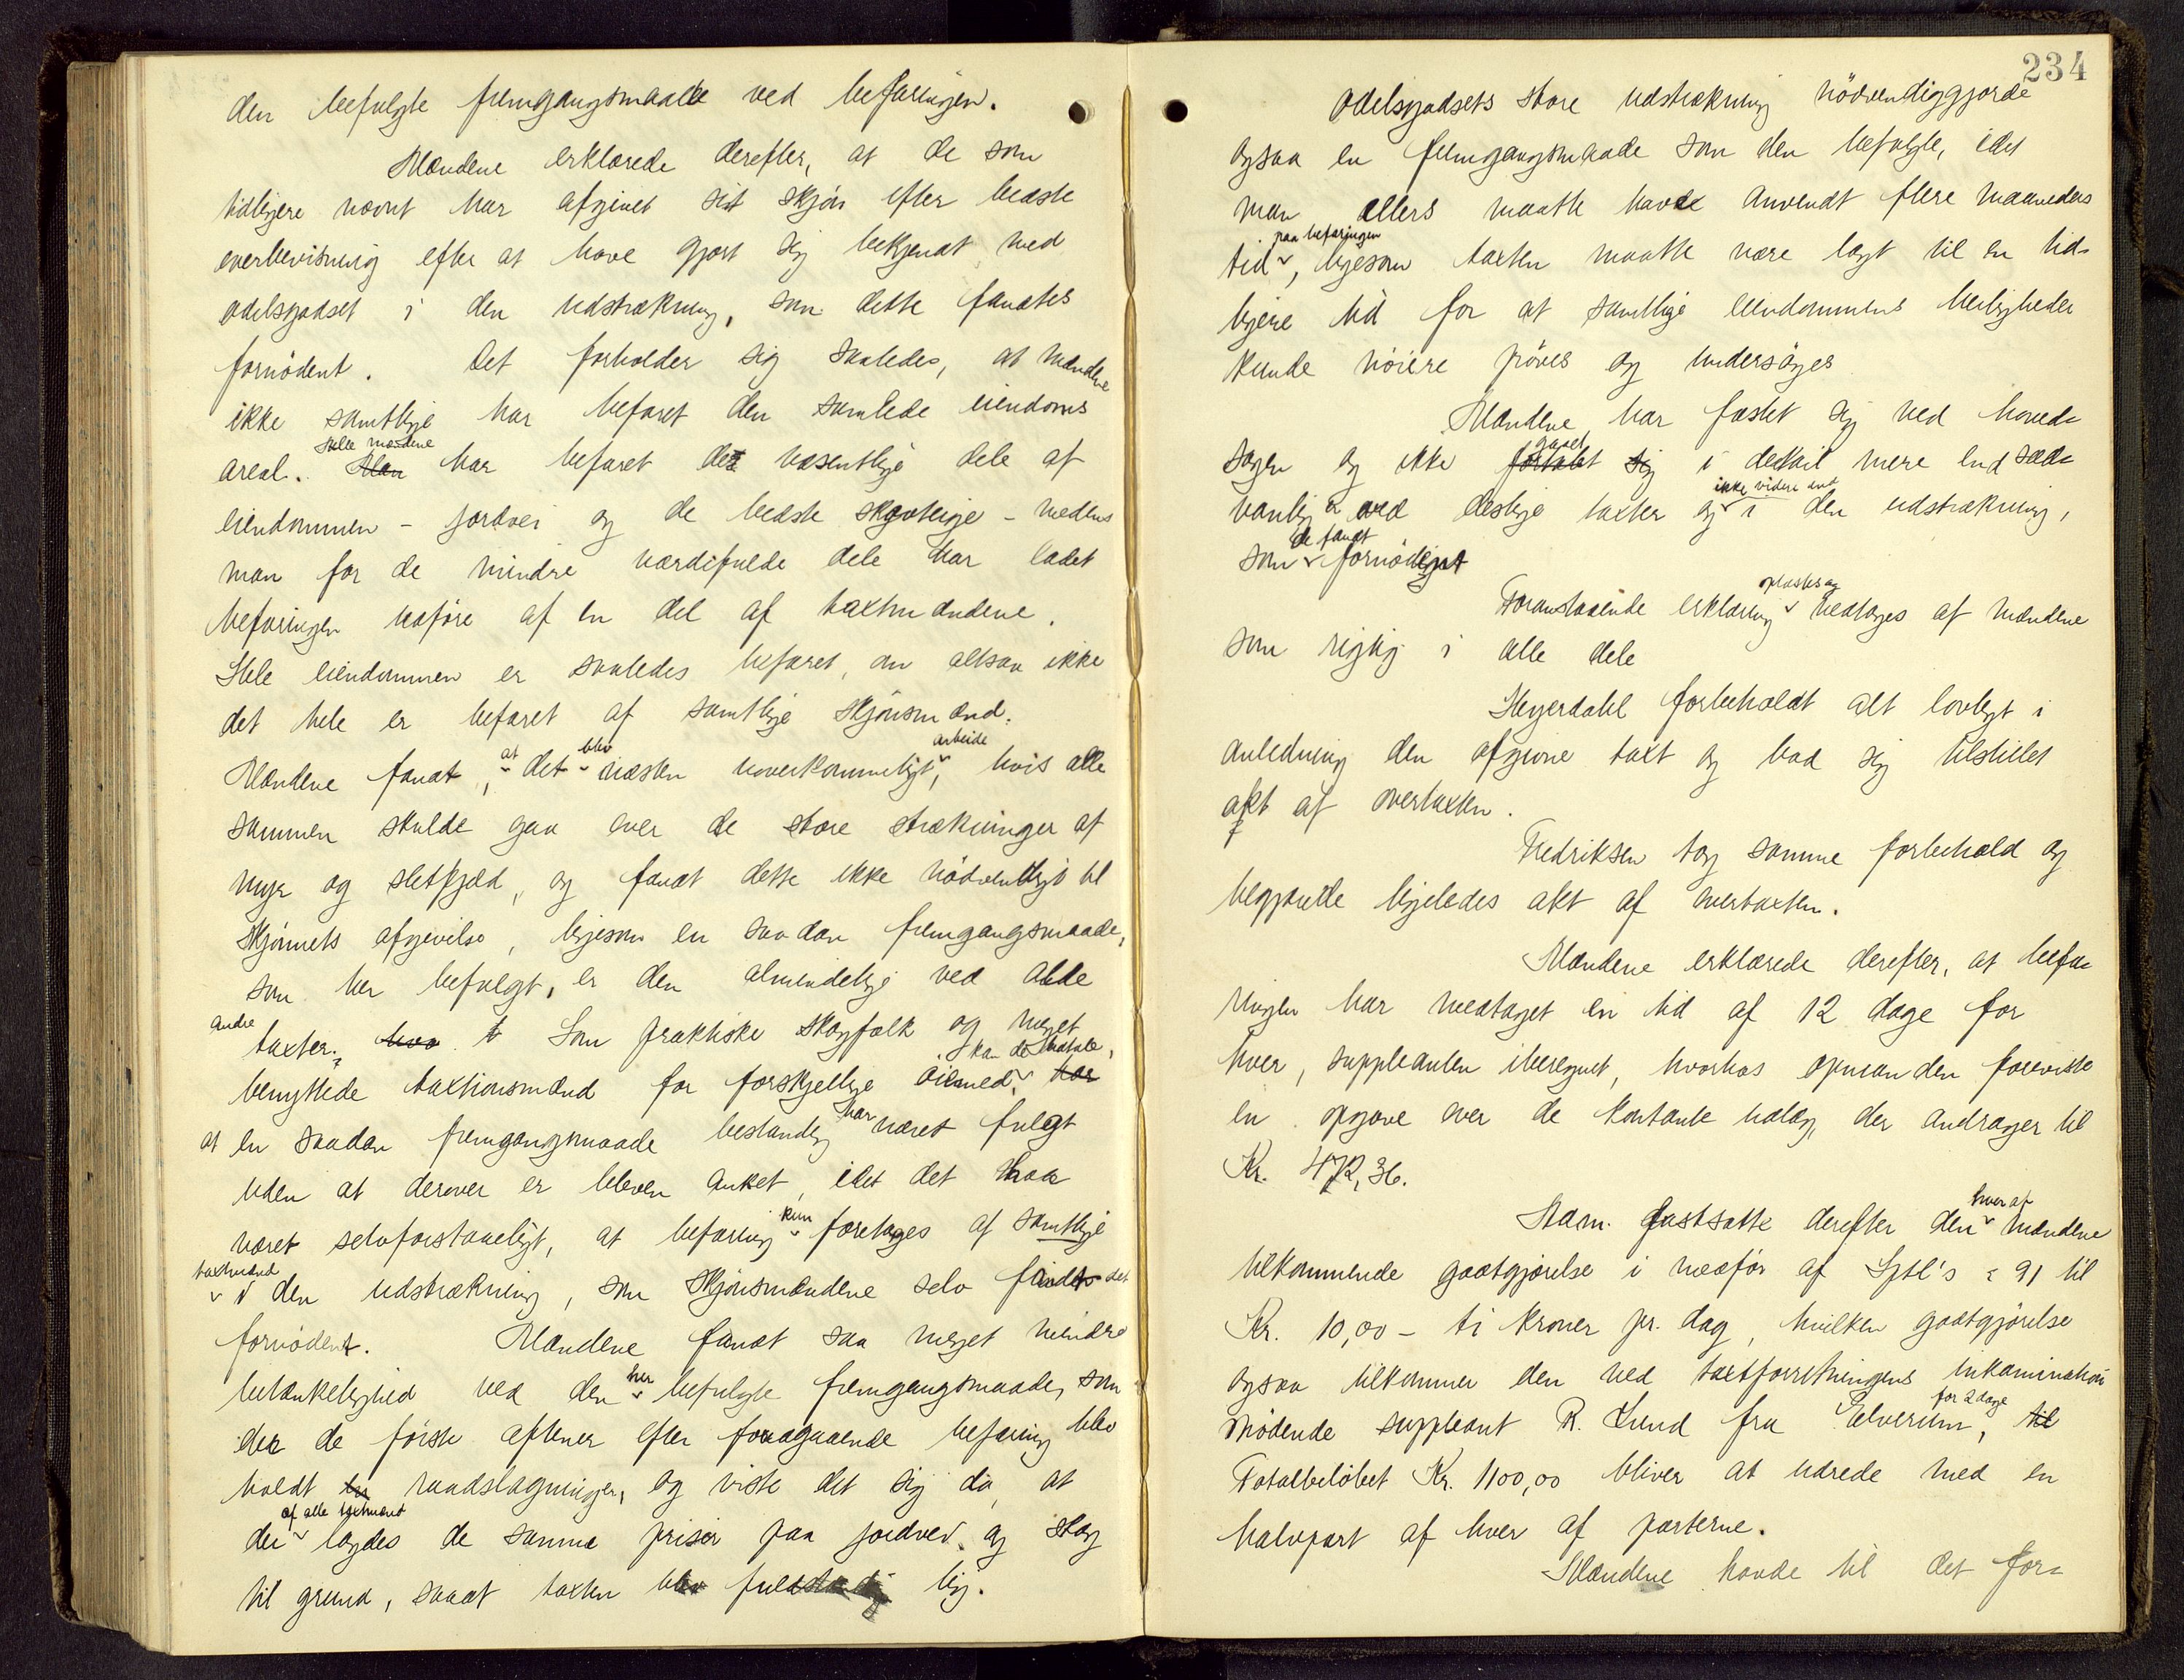 den befulgte fremgangsmaade ved befaringen.
Mændene erklærede derefter, at de som
tidligere nævnt har afgivet sit skjön efter bedste
overbevisning efter at have gjort sig bekjendt med
odelsgodset i den udstrækning, som dette fandtes
fornödent. Det forholder sig saaledes, at mændene
ikke samtlige har befaret den samlede eiendoms
areal. Alle mændene har befaret de væsentlige dele af
eiendommen - jordvei og de bedste skogteige - medens
man for de mindre værdifulde dele har ladet
befaringen udföre af en del af taxtmændene.
Hele eiendommen er saaledes befaret, om altsaa ikke
det hele er befaret af samtlige skjönsmænd.
Mændene fandt, at det blev næsten uoverkommeligt arbeide, hvis alle
sammen skulde gaa over de store strækninger af
myr og sletfjeld, og fandt dette ikke nödvendigt til
skjönnets afgivelse, ligesom en saadan fremgangsmaade,
som her befulgt, er den almindelige ved alle
andre taxter. Som praktiske skogfolk og meget
benyttede taxtionsmænd for forskjellige öiemed kan de udtale,
at en saadan fremgangsmaade bestandig har været fulgt
uden at derover er bleven anket, idet det har
været selvforstaaeligt, at befaring kun foretages af samtlige
taxtmænd i den udstrækning, som skjönsmændene selv finder det
fornödent. Mændene fandt saa meget mindre
betænkelighed ved den her befulgte fremgangsmaade, som
der de förste aftener efter foregaaende befaring blev
holdt raadslagninger, og viste det sig da, at
der af alle taxtmænd lagdes de samme priser paa jordvei og skog
til grund, saaat taxten blev fuldstændig lig.
234
Odelsgodsets store udstrækning nödvendiggjorde
ogsaa en fremgangsmaade som den befulgte, idet
man ellers maatte havde anvendt flere maaneders
tid paa befaringen, ligesom taxten maatte være lagt til en tid-
ligere tid for at samtlige eiendommens herligheder
kunde nöiere pröves og undersöges
Mændene har fæstet sig ved hoved-
sagen og ikke gaaet i detail mere end sæd-
vanlig er ved deslige taxter og ikke videre end i den udstrækning,
som de fandt fornödent
Foranstaaende erklæring oplæstes og vedtages af mændene
som rigtig i alle dele
Heyerdahl forbeholdt alt lovligt i
anledning den afgivne taxt og bad sig tilstillet
akt af overtaxten.
Fredriksen tog samme forbehold og
begjærede ligeledes akt af overtaxten.
Mændene erklærede derefter, at befa-
ringen har medtaget en tid af 12 dage for
hver, suppleanten iberegnet, hvorhos opmanden foreviste
en opgave over de kontante udlæg, der andrager til
Kr. 472,36.
Adm. fastsatte derefter den hver af mændene
tilkommende godtgjörelse i medför af Sptl's § 91 til
Kr. 10,00 - ti kroner pr. dag, hvilken godtgjörelse
ogsaa tilkommer den ved taxtforretningens inkamination
mödende suppleant R. Lund fra Elverum, for 2 dage
Totalbelöbet Kr. 1100,00 bliver at udrede med en
halvpart af hver af parterne.
Mændene havde til det for-